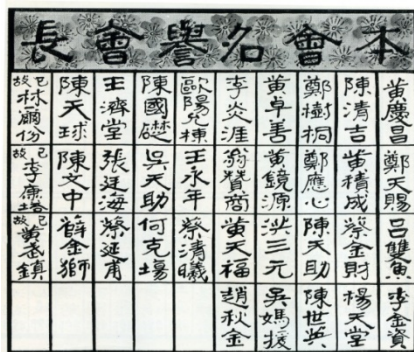 本會名譽會長
黃慶昌 鄭天賜 李金資
陳清吉 黃積成 蔡金財 楊天堂
鄭樹桐 鄭應心 陳天助 陳世英
黃卓善 黃鏡源 洪三元 吳媽援
李炎涯 翁贊商 黃天福 趙秋金
王永年 蔡清曦
陳國礎 吳天助 何克塲
王濟堂 張廷海 蔡延甫
陳天球 陳文中 薛金獅
已故林爾份 已故 已故黃武鎮